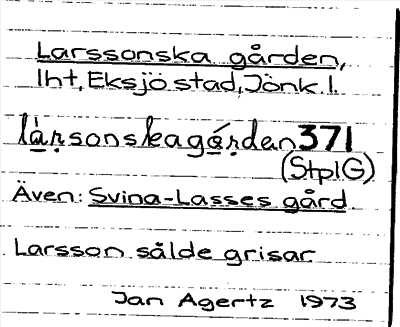 Larssonska gården,
lht, Eksjö stad, Jönk. l.
làṛsonskagáṛdan 371
(StplG)
Även: Svina-Lasses gård
Larsson sålde grisar
Jan Agertz 1973